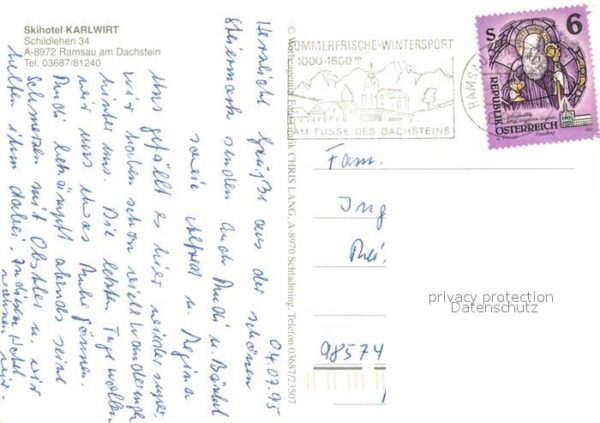 Skihotel KARLWIRT
Schildlehen 34
A-8972 Ramsau am Dachstein
Tel. 03687/81240
04.07.95
Herzliche Grüße aus der schönen
Steiermark senden Euch Rudi u. Bärbel
sowie Alfred u. Regina
Uns gefällt es hier wieder super.
wir haben schon viele Wanderungen
hinter uns. Die letzten Tage wollen
wir uns etwas Ruhe gönnen.
Rudi bekämpft abends seine
Schmerzen mit Obstler u. wir
helfen ihm dabei. In diesem Hotel
wohnen wir.
CHRIS LANG, A-8970 Schladming, Telefon 03687/23507
SOMMERFRISCHE-WINTERSPORT
1000-1800 m
AM FUSSE DES DACHSTEINS
RAMSAU
S 6
REPUBLIK
ÖSTERREICH
Fam.
Ing
98574
privacy protection
Datenschutz